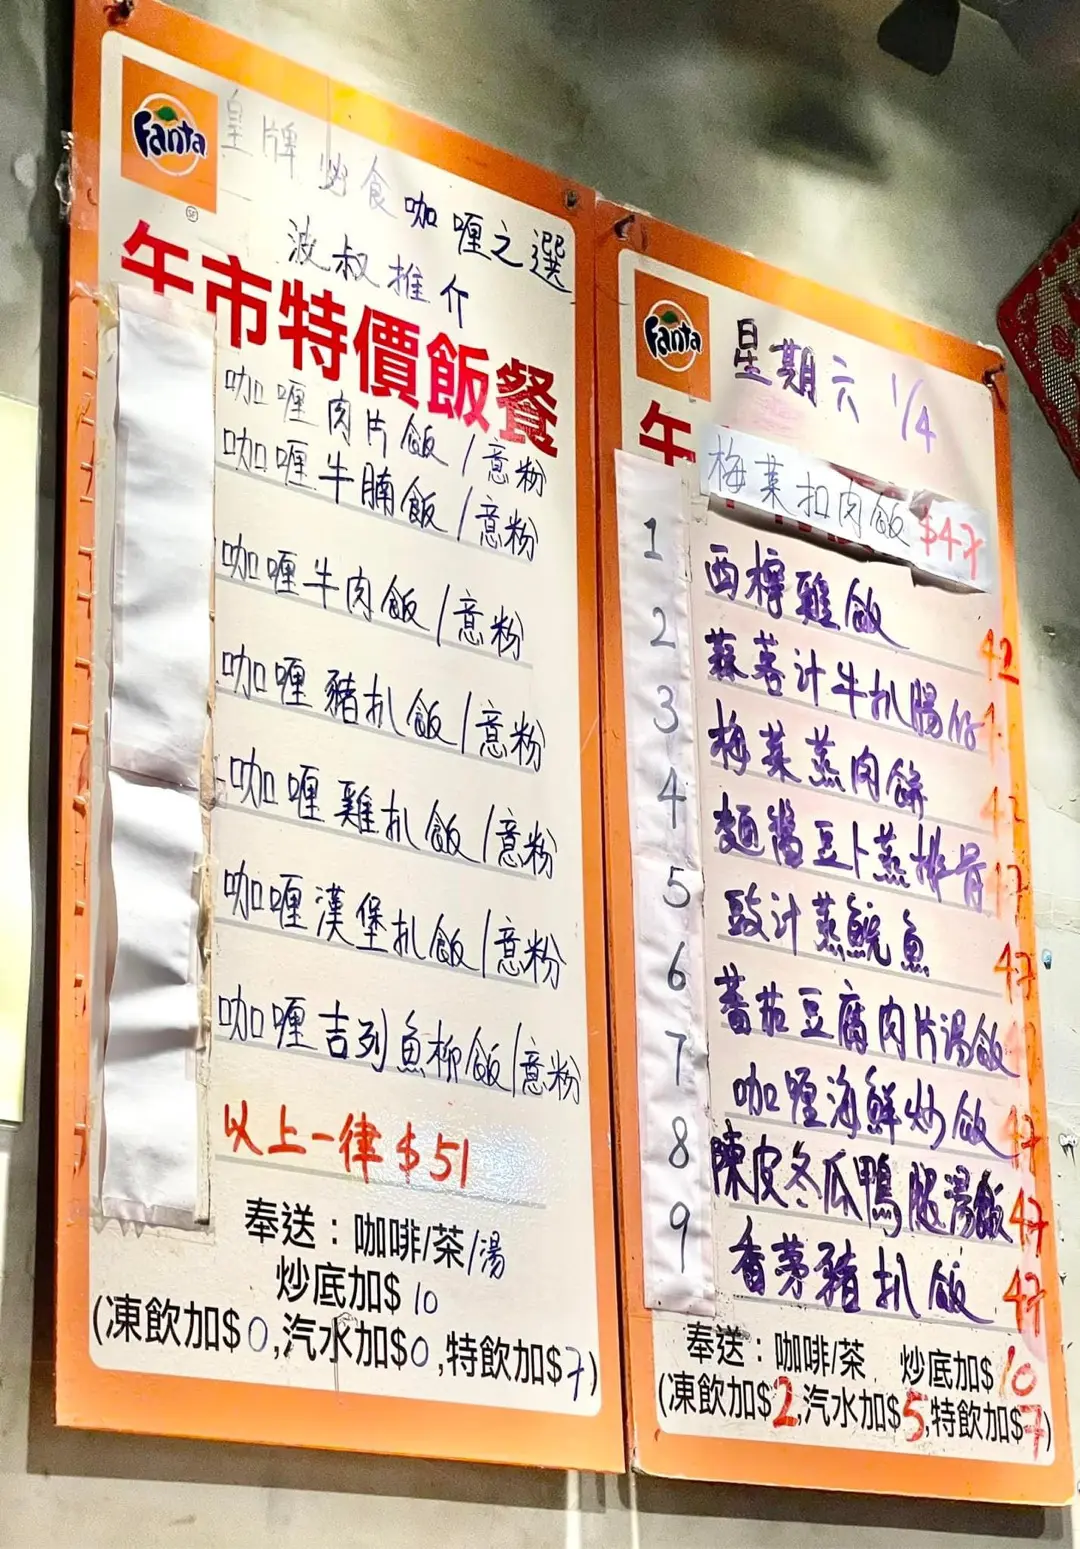 Fanta
皇牌必食咖喱之選
波叔推介
午市特價飯餐
咖喱肉片飯/意粉
咖喱牛腩飯/意粉
咖喱牛肉飯/意粉
咖喱豬扒飯/意粉
咖喱雞扒飯/意粉
咖喱漢堡扒飯/意粉
咖喱吉列魚柳飯/意粉
以上一律$51
奉送：咖啡/茶/湯
炒底加$10
(凍飲加$0,汽水加$0,特飲加$7)
Fanta
星期六 1/4
午
梅菜扣肉飯 $47
1 西檸雞飯 42
2 蒜蓉汁牛扒腸仔
3 梅菜蒸肉餅 42
4 麵醬豆卜蒸排骨 47
5 豉汁蒸鯇魚 47
6 蕃茄豆腐肉片湯飯
7 咖喱海鮮炒飯 47
8 陳皮冬瓜鴨腿湯飯 47
9 香茅豬扒飯 47
奉送：咖啡/茶 炒底加$10
(凍飲加$2,汽水加$5,特飲加$7)